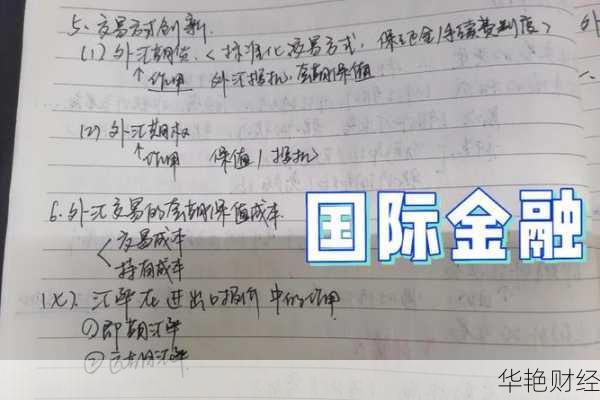 5、交易方式创新.
(1) 外汇期货 <标准化交易方式、保证金/手续费制度>
↑作用 外汇投机、套期保值
(2) 外汇期权
↑作用 保值/投机>
6、外汇交易的套期保值成本.
< 交易成本
持有成本
国际金融
汇率在进出口报价中的作用
①即期汇率
②远期汇率
华艳财经